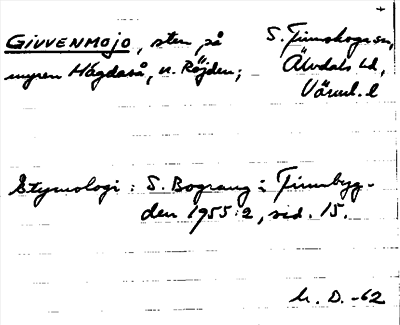 GIVVENMOJO, sten på
myren Hågdaså, n. Röjden;
S. Finnskoga sn,
Älvdals hd,
Värml. l
Etymologi: S. Bograng i Finnbyg-
den 1955:2, sid. 15.
h. D. -62